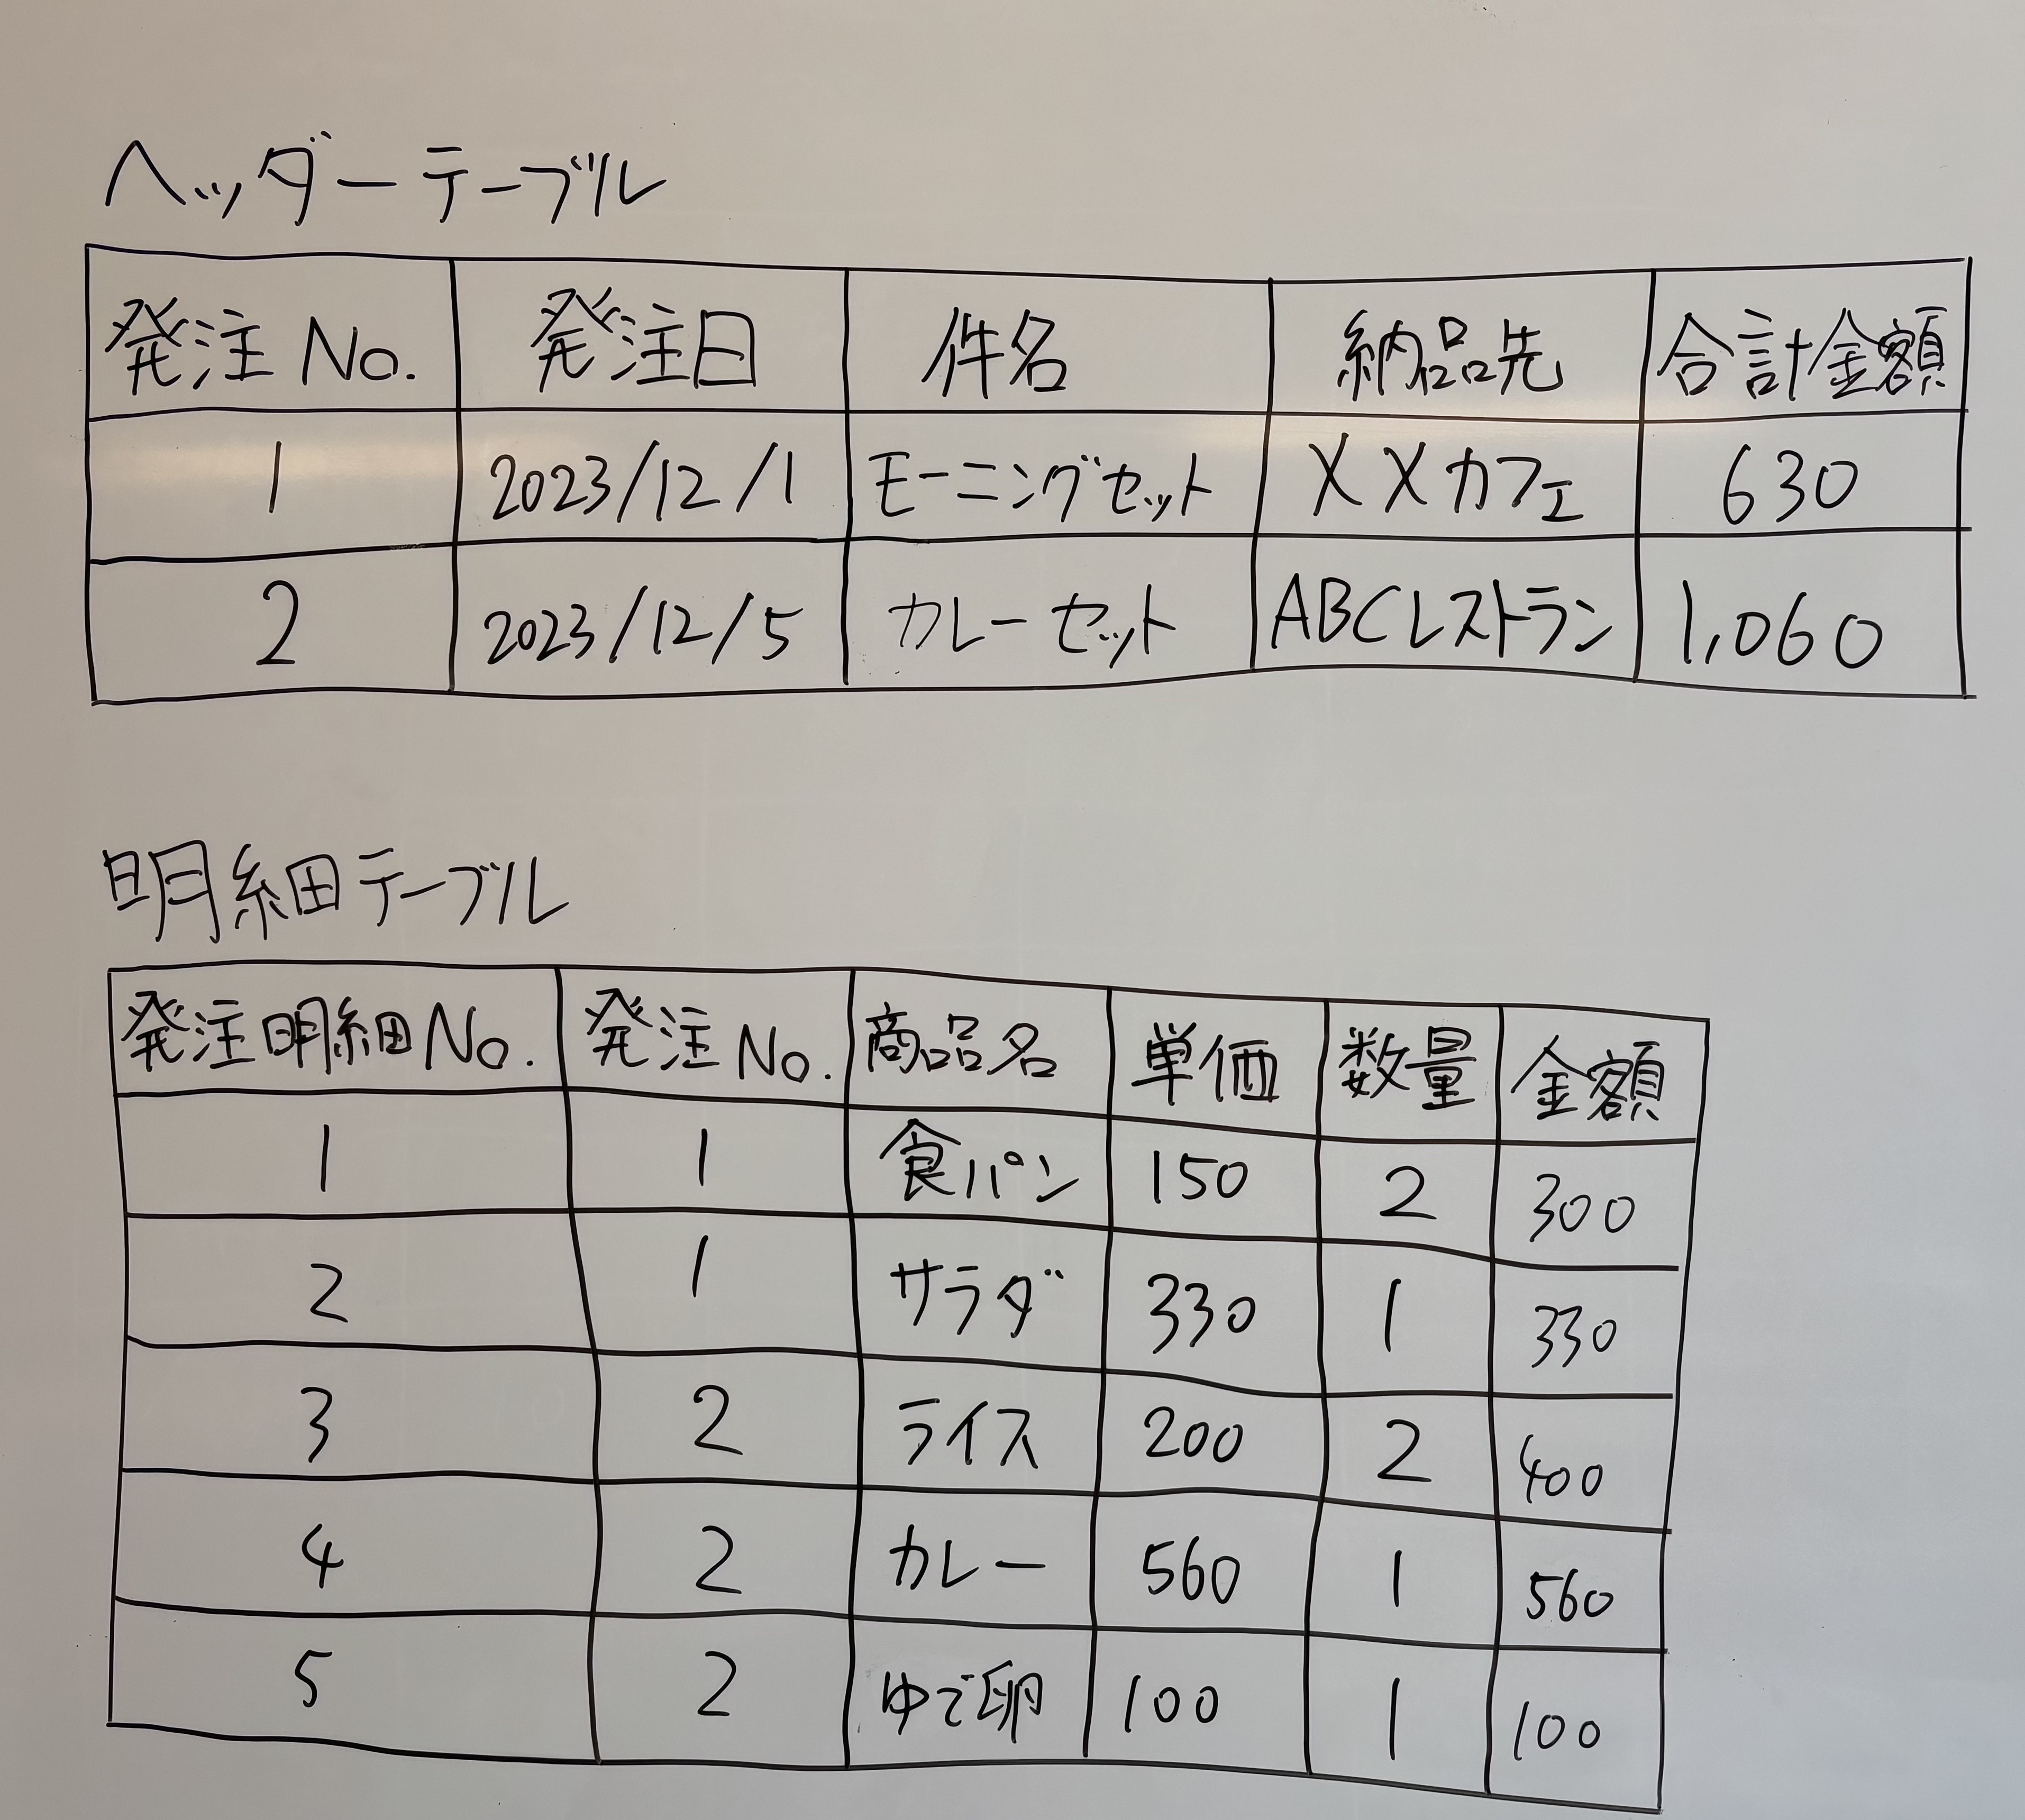 ヘッダーテーブル
発注No. 発注日 件名 納品先 合計金額
1 2023/12/1 モーニングセット XXカフェ 630
2 2023/12/5 カレーセット ABCレストラン 1,060
明細テーブル
発注明細No. 発注No. 商品名 単価 数量 金額
1 1 食パン 150 2 300
2 1 サラダ 330 1 330
3 2 ライス 200 2 400
4 2 カレー 560 1 560
5 2 ゆで卵 100 1 100